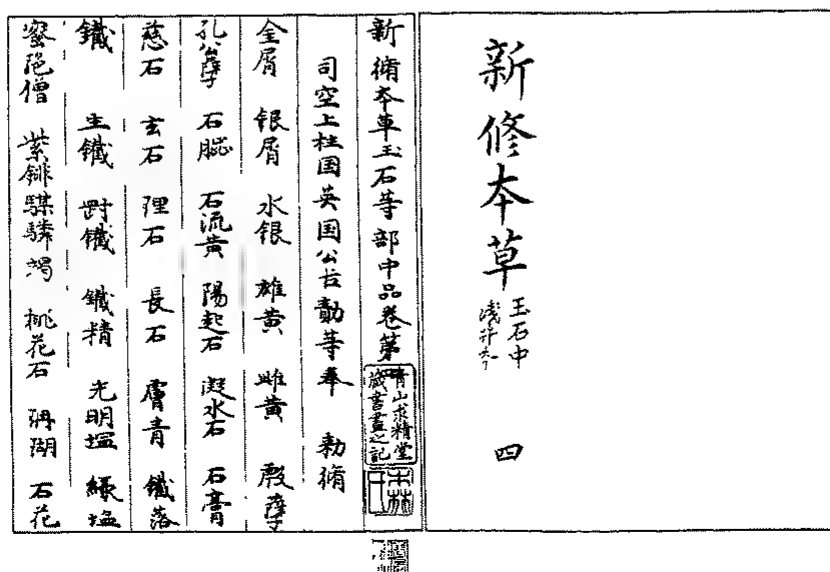 新修本草
玉石中
四
新脩本草玉石等部中品卷第四
青山求精堂
蔵書畫之記
司空上柱国英国公臣勣等奉 勅脩
金屑 銀屑 水銀 雄黄 雌黄 殷孽
孔公孽 石脳 石流黄 陽起石 凝水石 石膏
慈石 玄石 理石 長石 膚青 鐵落
鐵 生鐵 鐵 鐵精 光明塩 緑塩
蜜陁僧 紫鉚騏驎竭 桃花石 珊瑚 石花